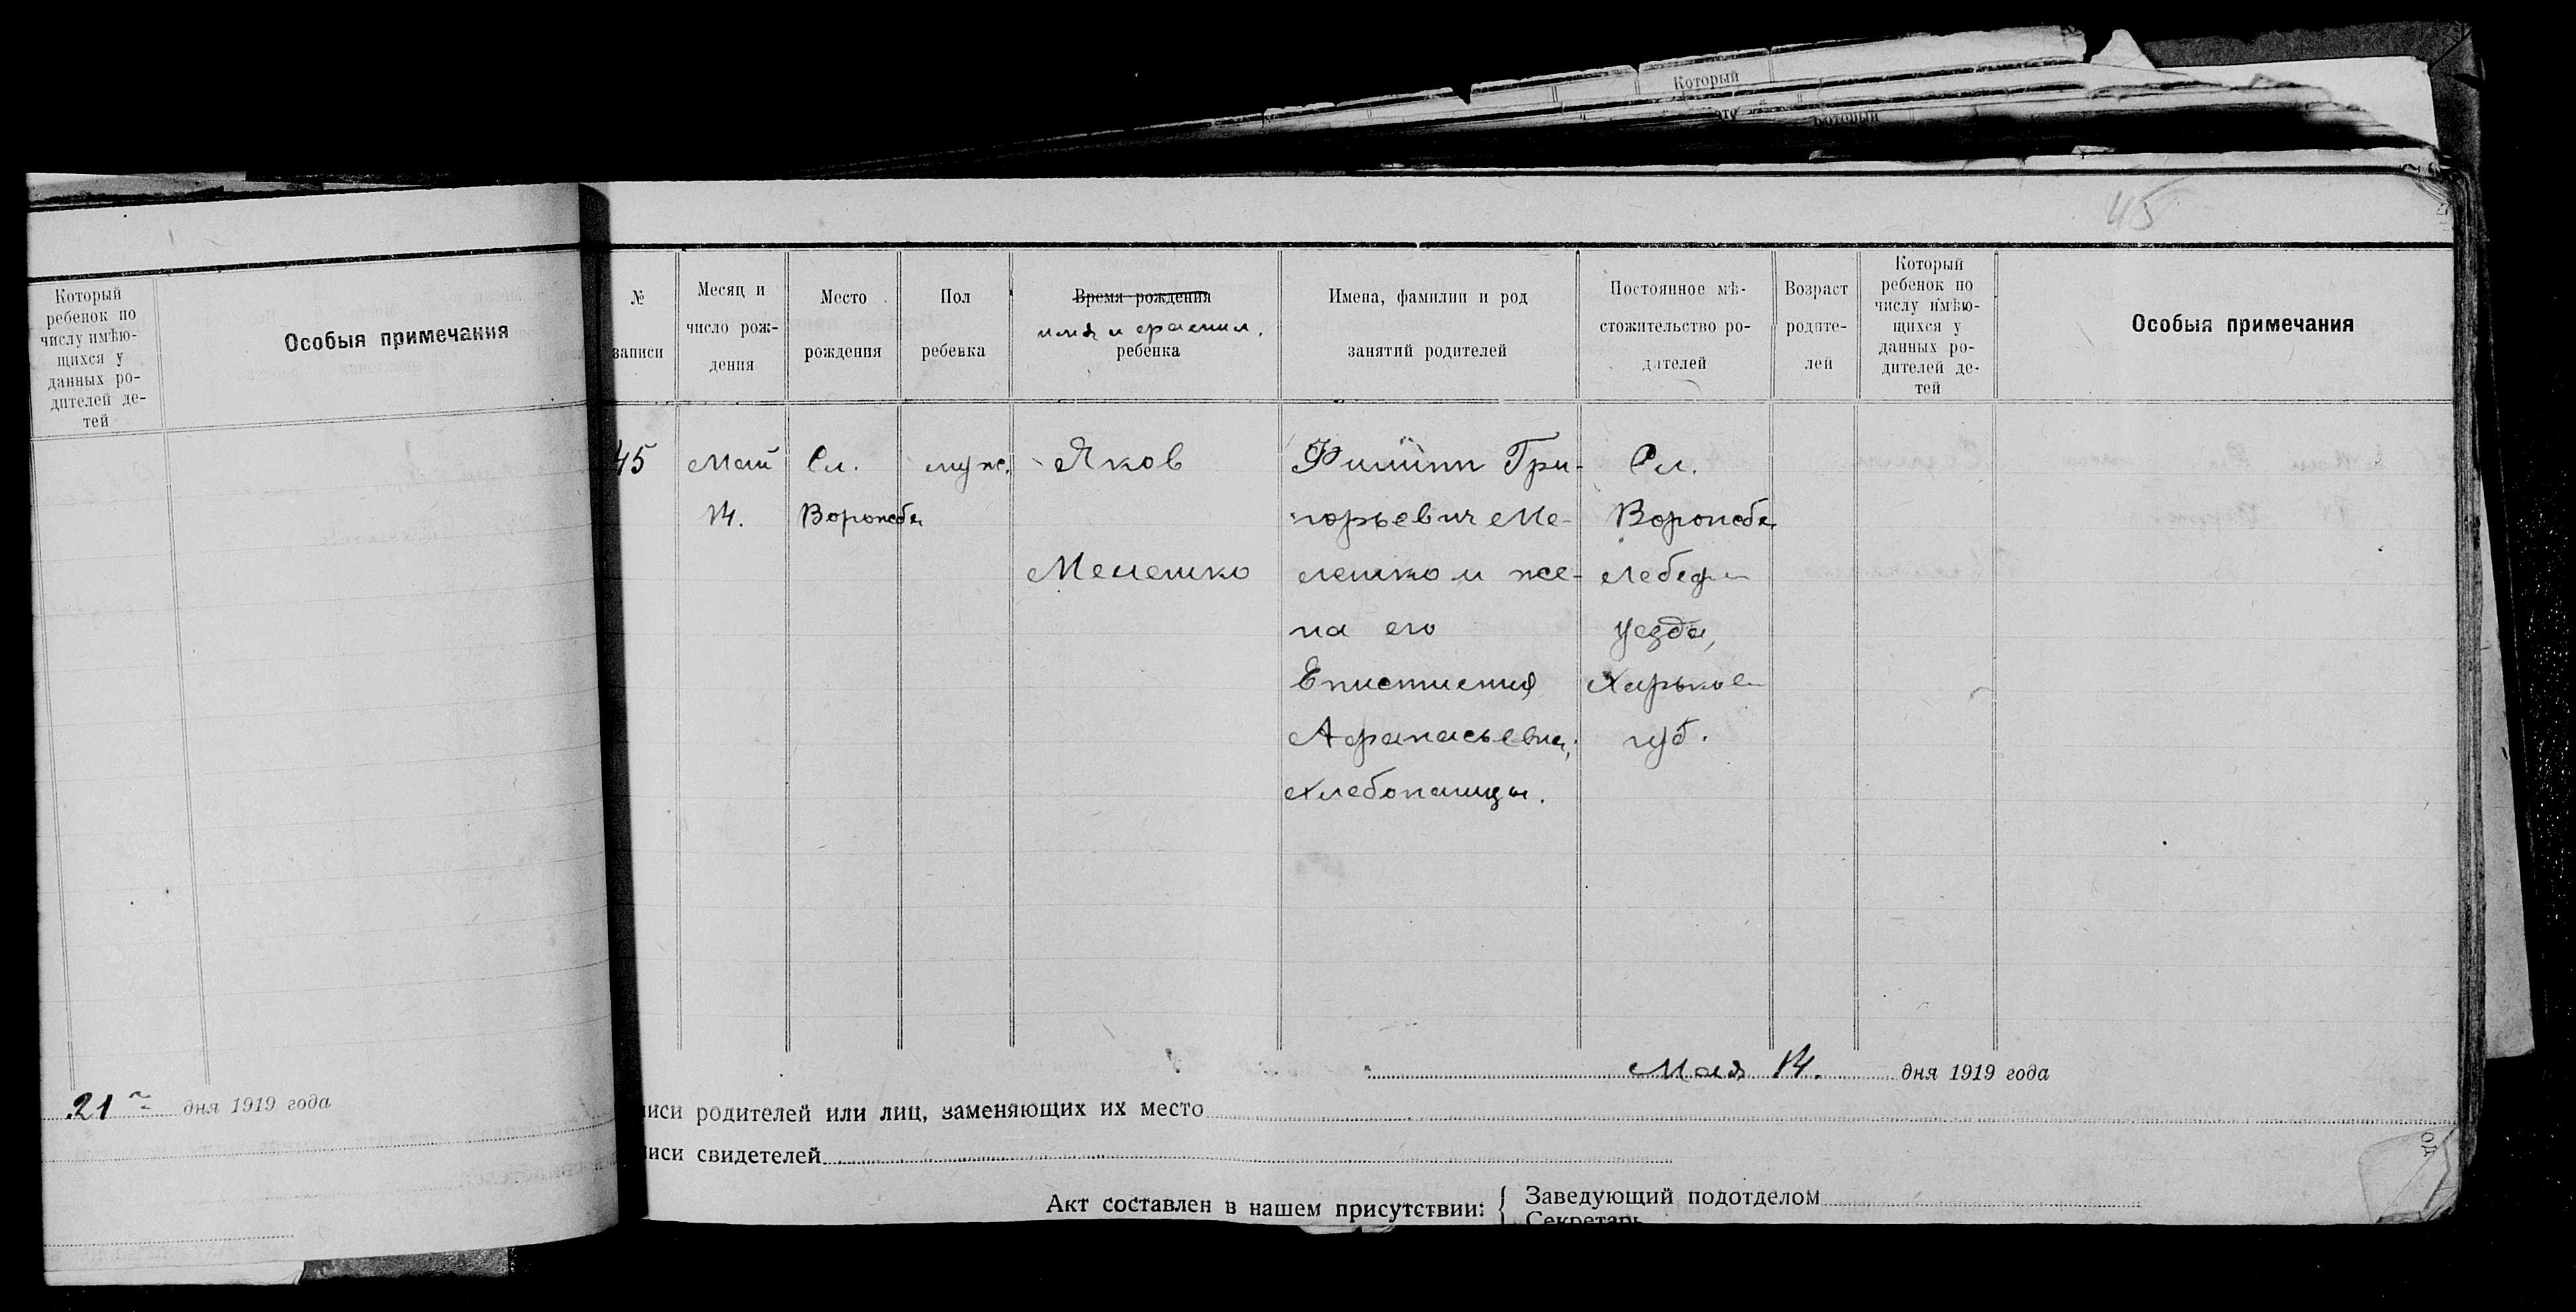 Который
Который
45
Который
ребенок по
числу имѣю-
щихся у
данных ро-
дителей де-
тей
Особыя примечания
21 дня 1919 года
№
записи
Месяц и
число рож-
дения
Место
рождения
Пол
ребенка
Время рождения
имя и фамил.
ребенка
Имена, фамилии и род
занятий родителей
Постоянное мѣ-
стожительство ро-
дителей
Возраст
родите-
лей
Который
ребенок по
числу имѣю-
щихся у
данных ро-
дителей де-
тей
Особыя примечания
45
Май
14.
Сл.
Ворожба
муж.
Яков
Мелешко
Филипп Гри-
горьевич Ме-
лешко и же-
на его
Епистимия
Афанасьевна,
хлебопашцы.
Сл.
Ворожба
Лебедин
уезда,
Харьков
губ.
Мая 14. дня 1919 года
иси родителей или лиц, заменяющих их место
иси свидетелей
Акт составлен в нашем присутствии:
Заведующий подотделом
Секретарь